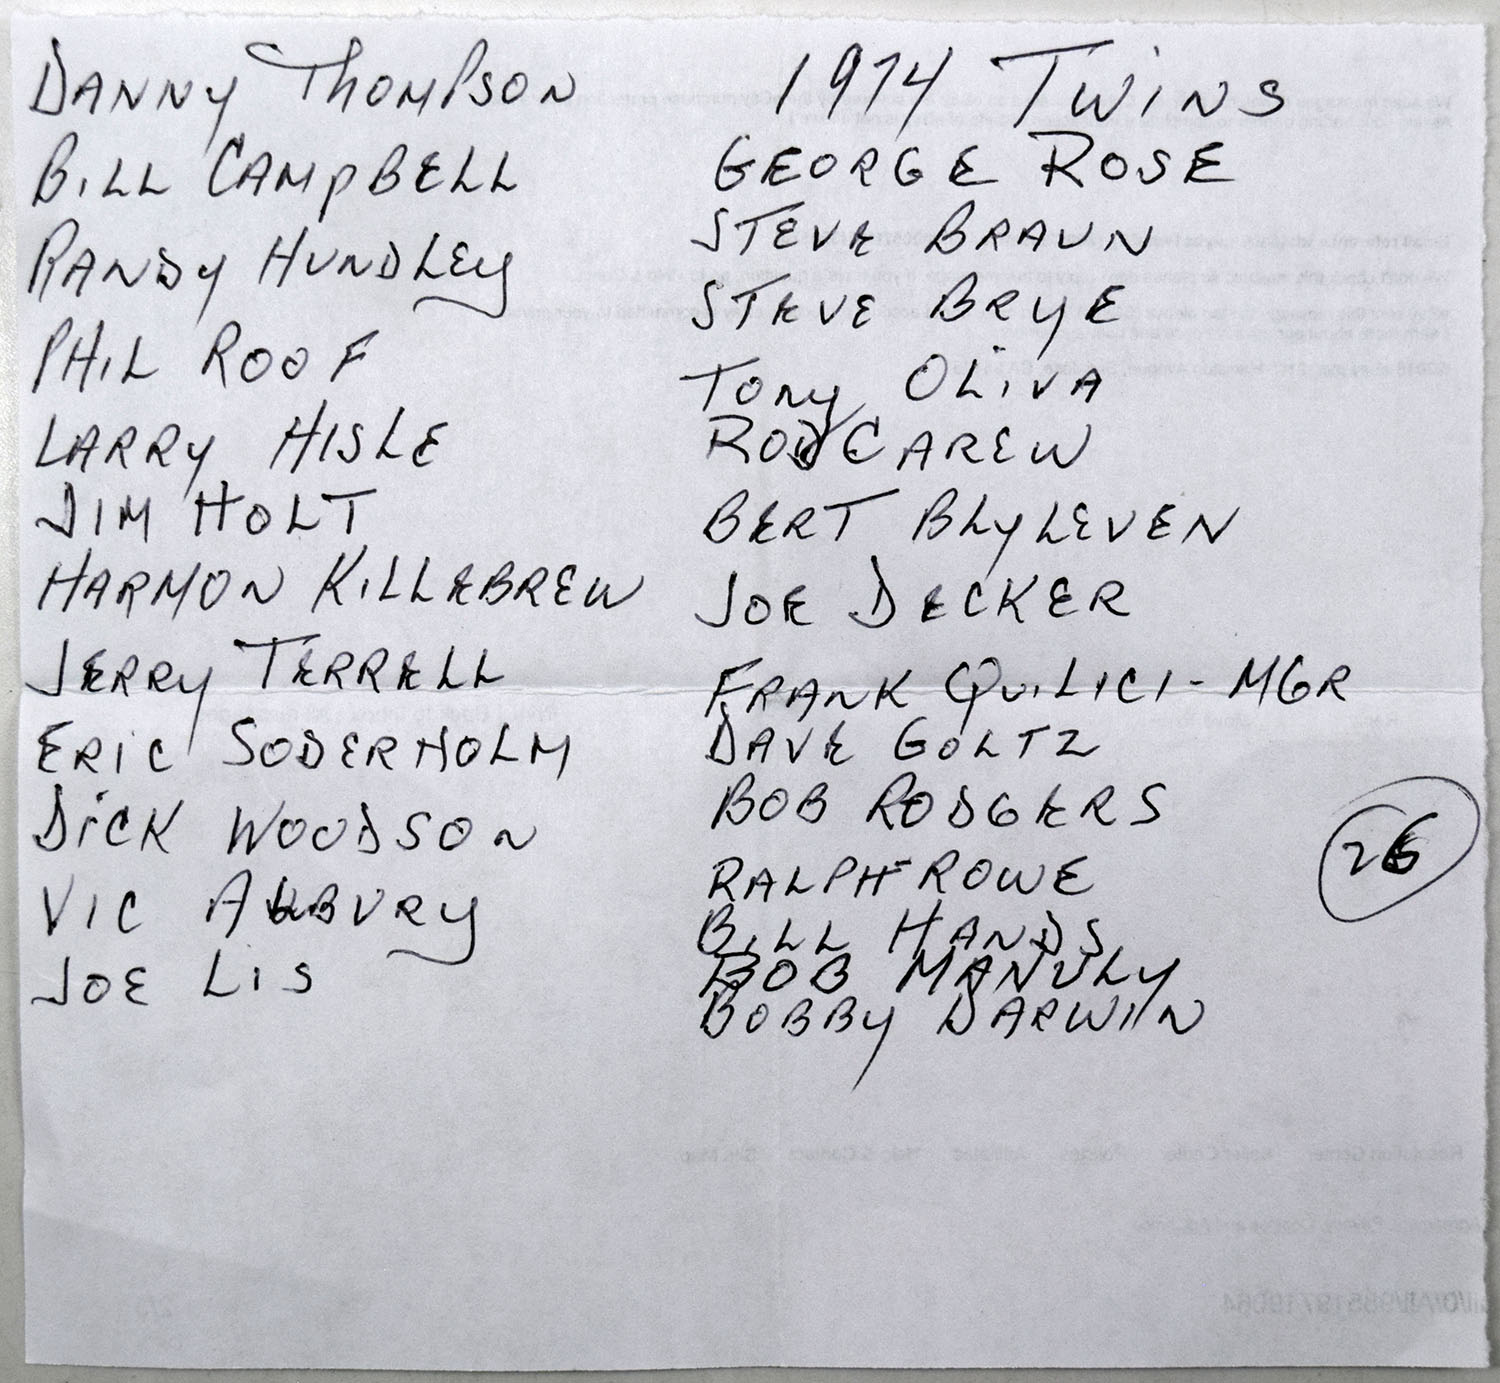 DANNY THOMPSON
BILL CAMPBELL
RANDY HUNDLEY
PHIL ROOF
LARRY HISLE
JIM HOLT
HARMON KILLEBREW
JERRY TERRELL
ERIC SODERHOLM
DICK WOODSON
VIC ALBURY
JOE LIS
1974 TWINS
GEORGE ROSE
STEVE BRAUN
STEVE BRYE
TONY OLIVA
ROD CAREW
BERT BLYLEVEN
JOE DECKER
FRANK QUILICI - MGR
DAVE GOLTZ
BOB RODGERS
RALPH ROWE
BILL HANDS
BOB
BOBBY DARWIN
26